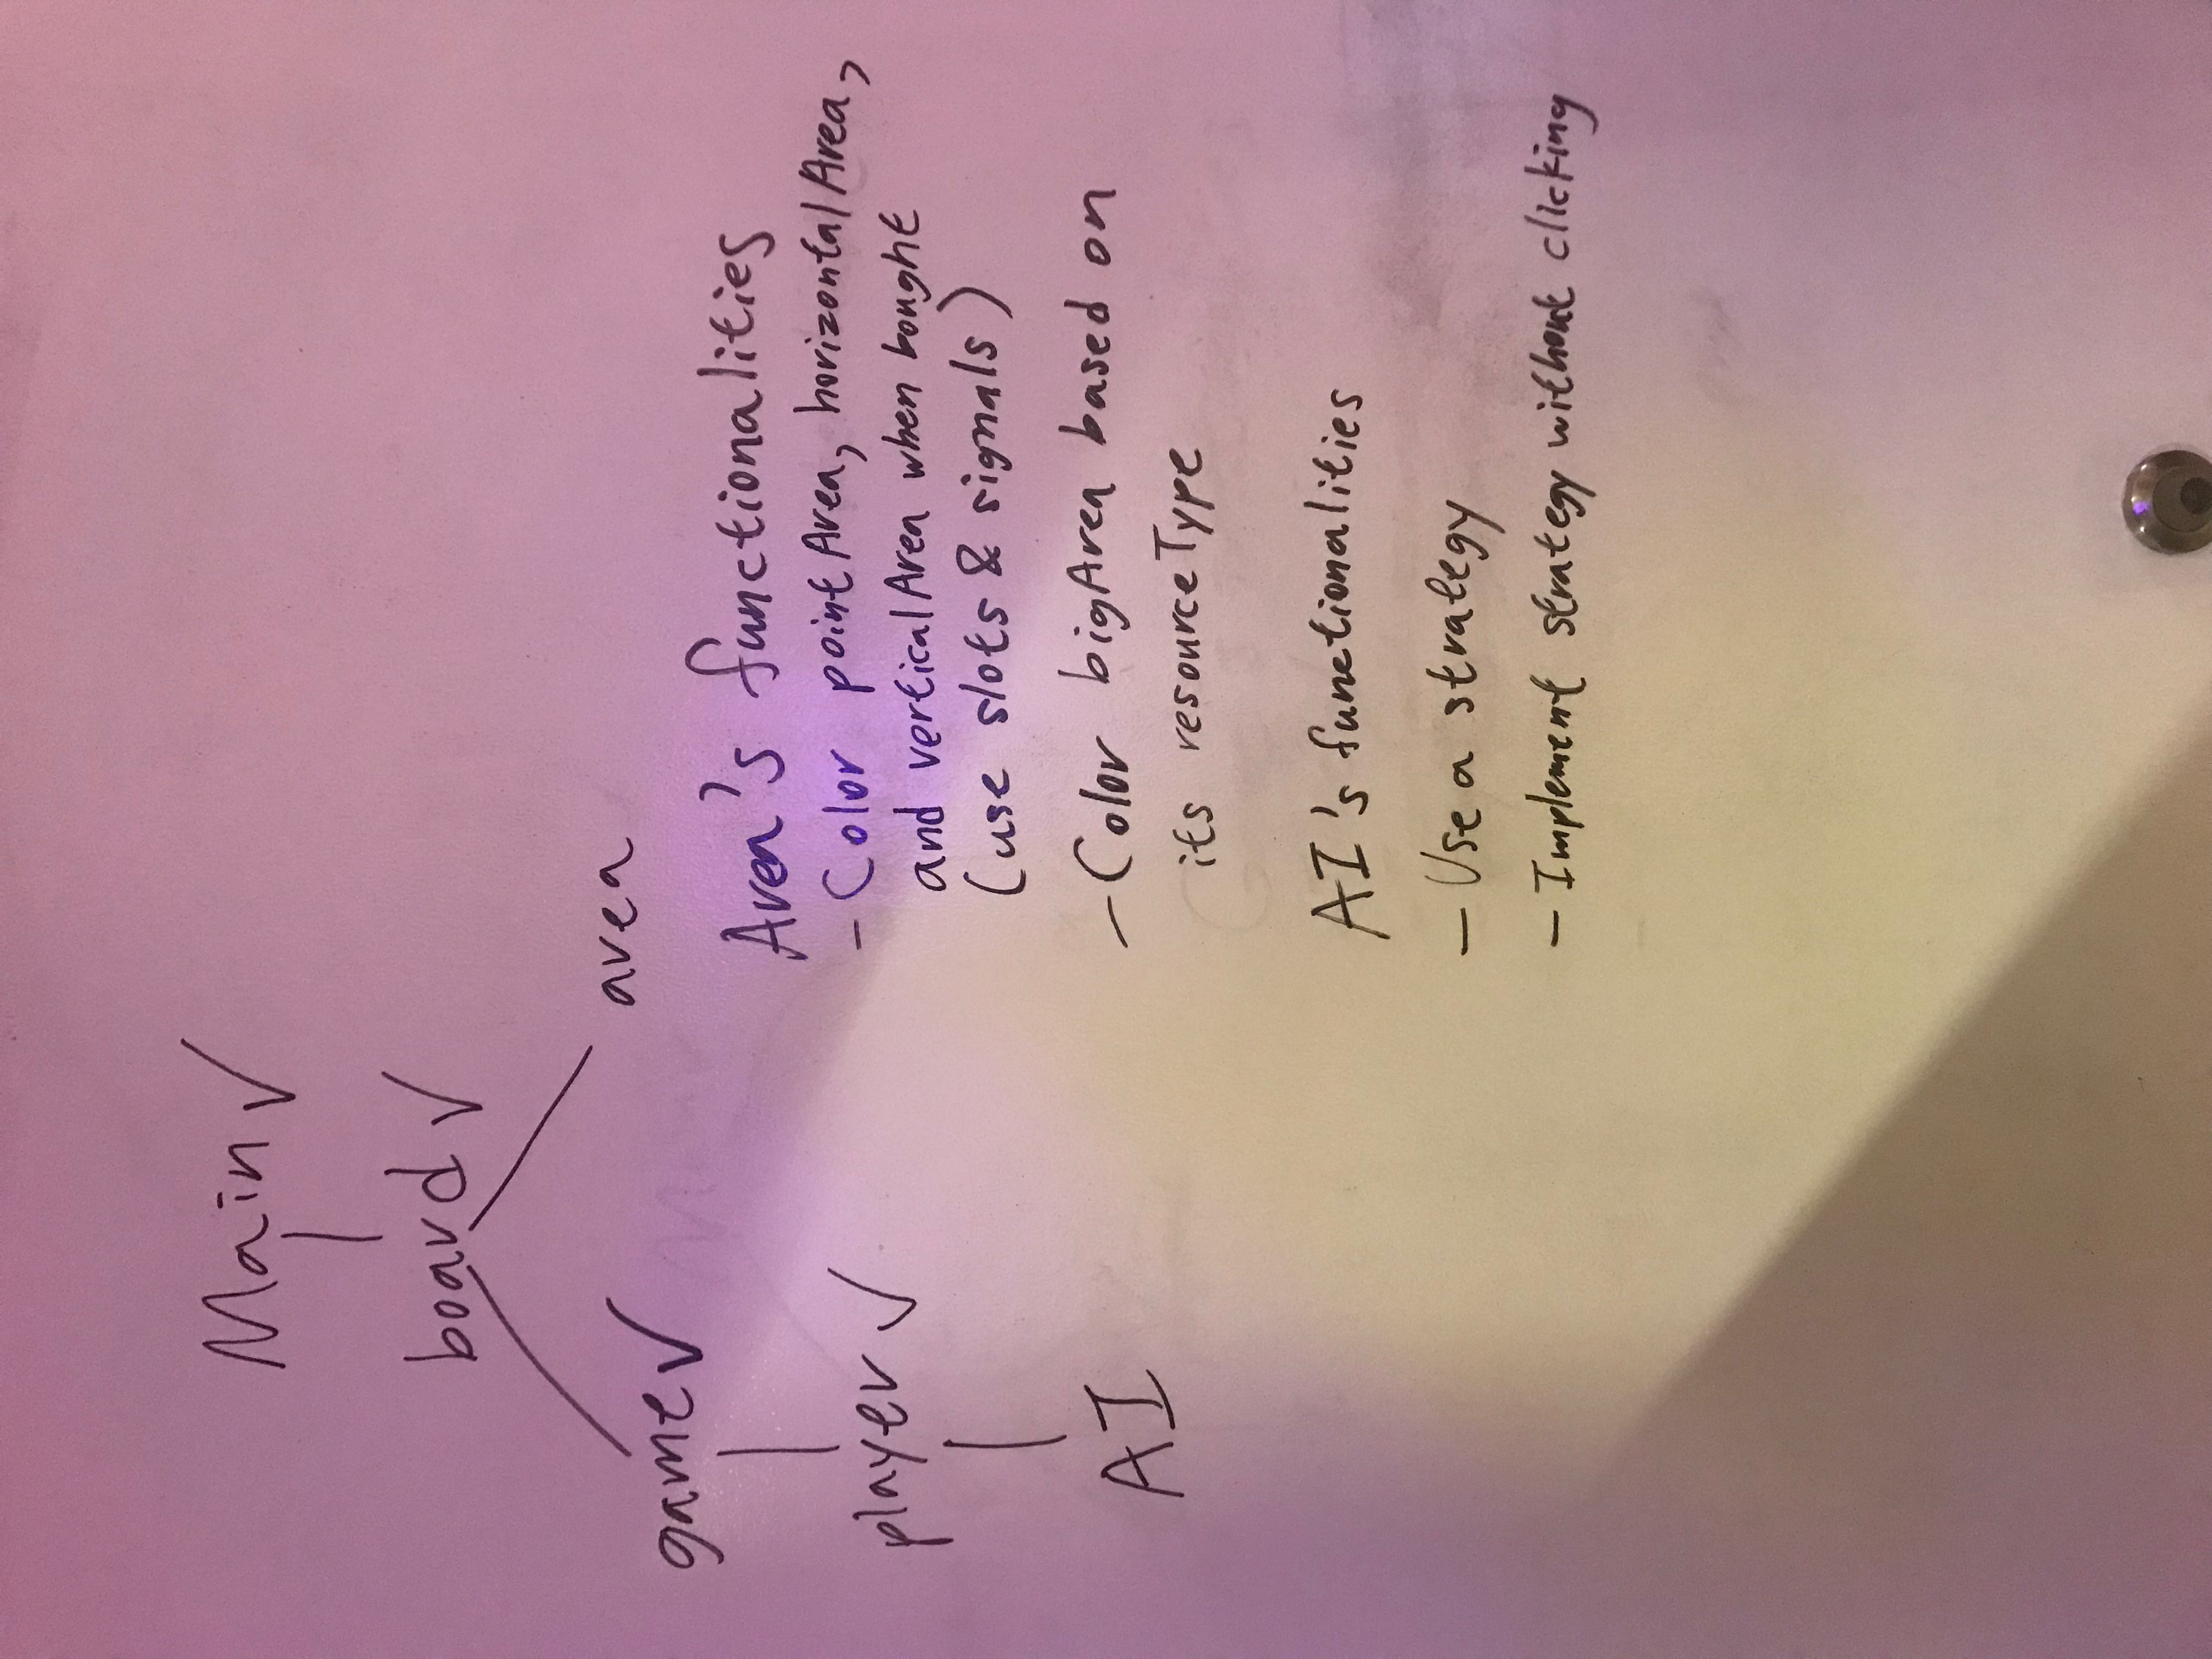 Main ✓
board ✓
game ✓
area
player ✓
AI
Area's functionalities
- Color pointArea, horizontalArea,
and verticalArea when bought
(use slots & signals)
- Color bigArea based on
its resourceType
AI's functionalities
- Use a strategy
- Implement strategy without clicking